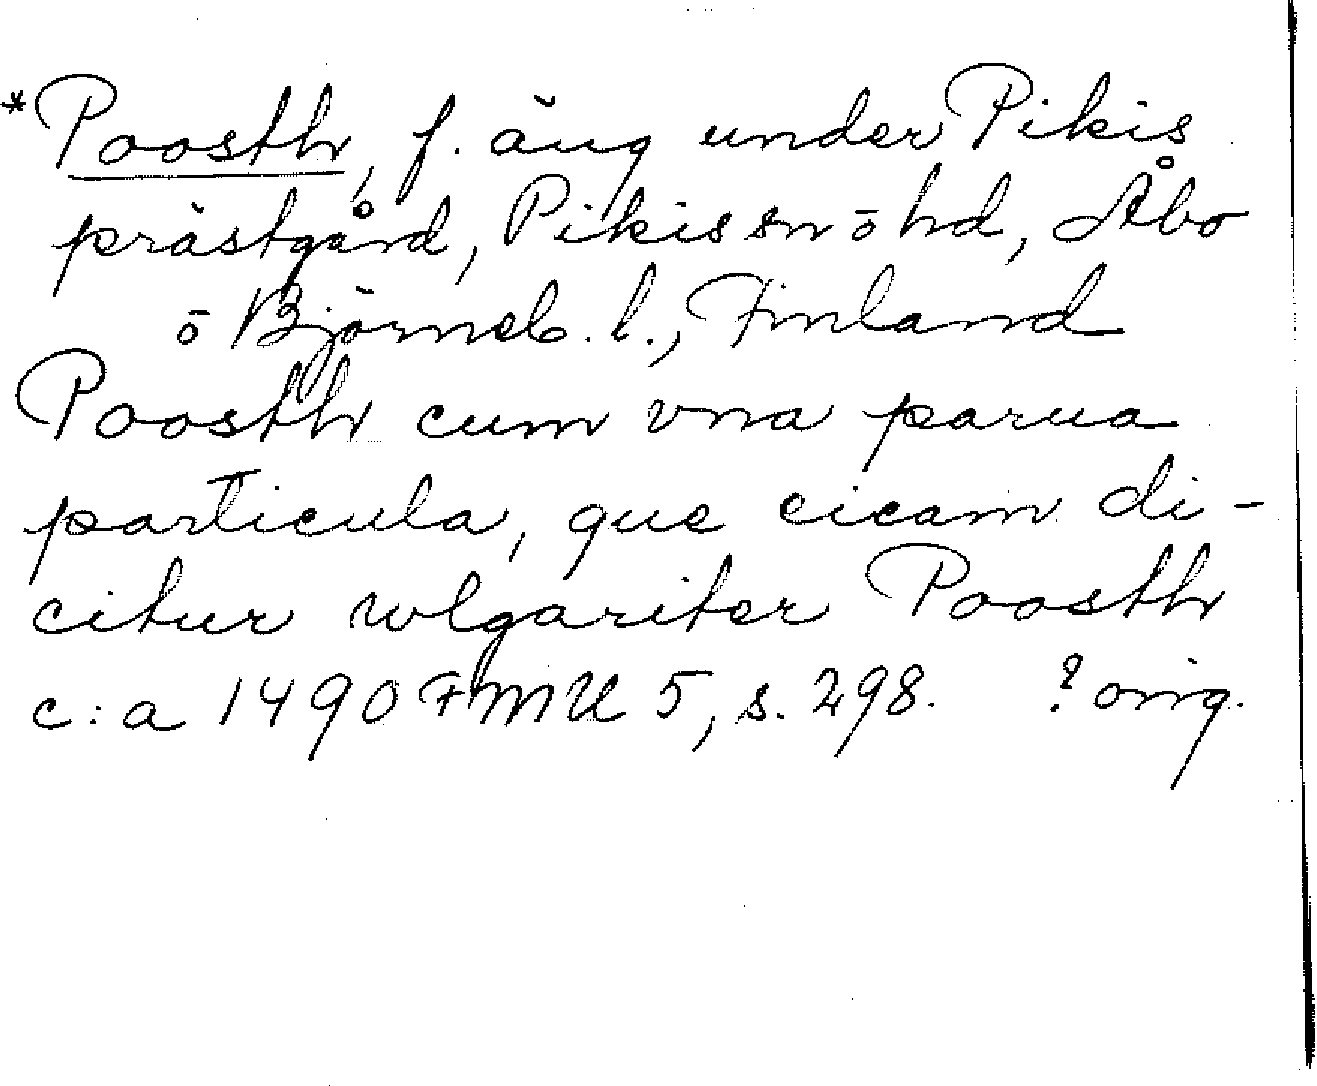 *Poosth, f. äng under Pikis
prästgård, Pikis sn ō hd, Åbo
ō Björneb. l., Finland
Poosth cum vna parua
particula, que eicam di-
citur wlgariter Poosth
c:a 1490 FMU 5, s. 298. ? orig.